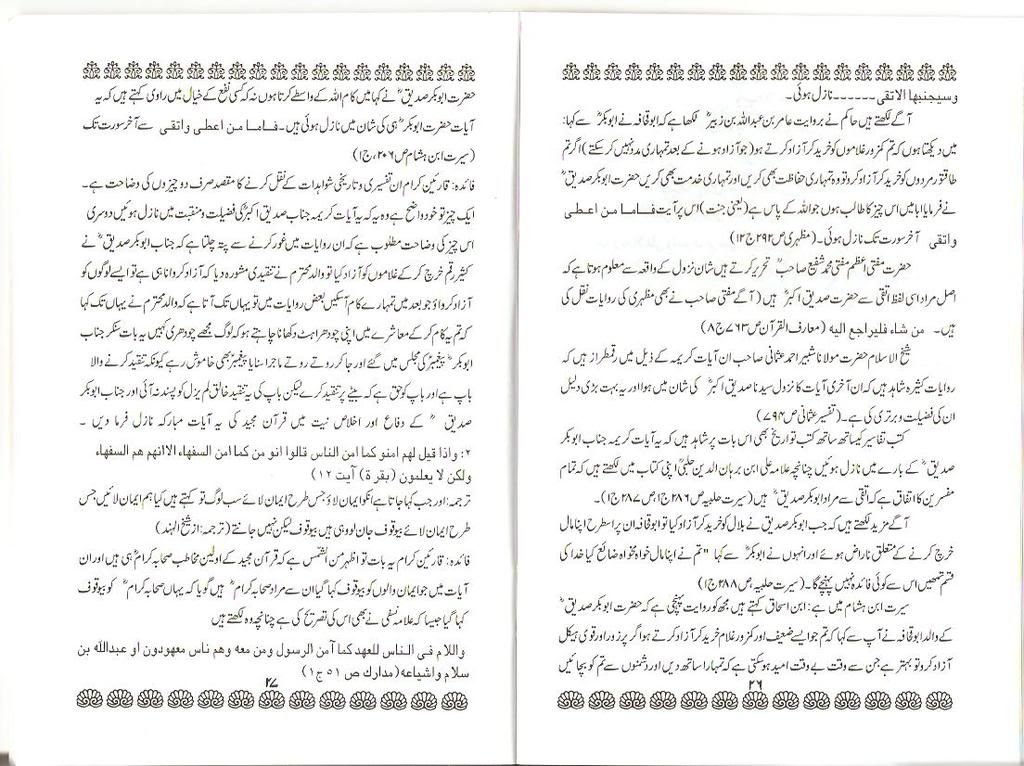 وسیجنبھا الاتقی۔۔۔۔۔۔نازل ہوئی۔
آگے لکھتے ہیں حاکم نے بروایت عامر بن عبداللہ بن زبیرؓ لکھا ہے کہ ابوقحافہ نے ابوبکرؓ سے کہا:
میں دیکھتا ہوں کہ تم کمزور غلاموں کو خرید کر آزاد کرتے ہو(جو آزاد ہونے کے بعد تمہاری مدد نہیں کر سکتے)اگر تم
طاقتور مردوں کو خرید کر آزاد کرو تو وہ تمہاری حفاظت بھی کریں اور تمہاری خدمت بھی کریں حضرت ابوبکر صدیقؓ
نے فرمایا ابا میں اس چیز کا طالب ہوں جو اللہ کے پاس ہے(یعنی جنت)اس پر آیت فاما من اعطی
واتقی آخر سورت تک نازل ہوئی۔(مظہری ص۲۹۲ج۱۲)
حضرت مفتی اعظم مفتی محمد شفیع صاحبؒ تحریر کرتے ہیں شان نزول کے واقعہ سے معلوم ہوتا ہے کہ
اصل مراد اسی لفظ اتقی سے حضرت صدیق اکبرؓ ہیں (آگے مفتی صاحب نے بھی مظہری کی روایات نقل کی
ہیں۔ من شاء فلیراجع الیہ (معارف القرآن ص۷۶۳ج۸)
شیخ الاسلام حضرت مولانا شبیر احمد عثمانی صاحب ان آیات کریمہ کے ذیل میں رقمطراز ہیں کہ
روایات کثیرہ شاہد ہیں کہ ان آخری آیات کا نزول سیدنا صدیق اکبرؓ کی شان میں ہوا اور یہ بہت بڑی دلیل
ان کی فضیلت و برتری کی ہے۔(تفسیر عثمانی ص۷۹۴)
کتب تفاسیر کیساتھ ساتھ کتب تواریخ بھی اس بات پر شاہد ہیں کہ یہ آیات کریمہ جناب ابوبکر
صدیقؓ کے بارے میں نازل ہوئیں چنانچہ علامہ علی ابن برہان الدین حلبیؒ اپنی کتاب میں لکھتے ہیں کہ تمام
مفسرین کا اتفاق ہے کہ اتقی سے مراد ابوبکر صدیقؓ ہیں(سیرت حلبیہ ص۲۸۶ج۱ ص۲۸۷ج۱)۔
آگے مزید لکھتے ہیں کہ جب ابوبکر صدیق نے بلال کو خرید کر آزاد کیا تو ابوقحافہ ان پر اسطرح اپنا مال
خرچ کرنے کے متعلق ناراض ہوئے اور انہوں نے ابوبکرؓ سے کہا "تم نے اپنا مال خواہ مخواہ ضائع کیا خدا کی
قسم تمہیں اس سے کوئی فائدہ نہیں پہنچے گا۔(سیرت حلبیہ، ص۲۸۸ج۱)
سیرت ابن ہشام میں ہے: ابن اسحاق کہتے ہیں مجھ کو روایت پہنچی ہے کہ حضرت ابوبکر صدیقؓ
کے والد ابوقحافہ نے آپ سے کہا کہ تم جو ایسے ضعیف اور کمزور غلام خرید کر آزاد کرتے ہو اگر پرزور اور قوی ہیکل
آزاد کرو تو بہتر ہے جن سے وقت بے وقت امید ہو سکتی ہے کہ تمہارا ساتھ دیں اور دشمنوں سے تم کو بچائیں
۲۶
حضرت ابوبکر صدیقؓ نے کہا میں کام اللہ کے واسطے کرتا ہوں نہ کہ کسی نفع کے خیال میں راوی کہتے ہیں کہ یہ
آیات حضرت ابوبکرؓ ہی کی شان میں نازل ہوئی ہیں۔فاما من اعطی واتقی سے آخر سورت تک
(سیرت ابن ہشام ص۲۰۶،ج۱)
فائدہ: قارئین کرام ان تفسیری و تاریخی شواہدات کے نقل کرنے کا مقصد صرف دو چیزوں کی وضاحت ہے۔
ایک چیز تو خود واضح ہے وہ یہ کہ یہ آیات کریمہ جناب صدیق اکبرؓ کی فضیلت و منقبت میں نازل ہوئیں دوسری
اس چیز کی وضاحت مطلوب ہے کہ ان روایات میں غور کرنے سے پتہ چلتا ہے کہ جناب ابوبکر صدیقؓ نے
کثیر رقم خرچ کر کے غلاموں کو آزاد کیا تو والد محترم نے تنقیدی مشورہ دیا کہ آزاد کروانا ہی ہے تو ایسے لوگوں کو
آزاد کرواؤ جو بعد میں تمہارے کام آسکیں بعض روایات میں تو یہاں تک آتا ہے کہ والد محترم نے یہاں تک کہا
کہ تم یہ کام کر کے معاشرے میں اپنی چودھراہٹ دکھانا چاہتے ہو کہ لوگ مجھے چودھری کہیں یہ بات سنکر جناب
ابوبکرؓ پیغمبر کی مجلس میں گئے اور جا کر روتے روتے ماجرا سنایا پیغمبر بھی خاموش رہے کیونکہ تنقید کرنے والا
باپ ہے اور باپ کو حق ہے کہ بیٹے پر تنقید کرے لیکن باپ کی یہ تنقید خالق لم یزل کو پسند نہ آئی اور جناب ابوبکر
صدیقؓ کے دفاع اور اخلاص نیت میں قرآن مجید کی یہ آیات مبارکہ نازل فرما دیں۔
۲: واذا قیل لھم امنو کما امن الناس قالوا انو من کما امن السفھاء الا انھم ھم السفھاء
ولکن لا یعلمون (بقرۃ) آیت ۱۲)
ترجمہ: اور جب کہا جاتا ہے انکو ایمان لاؤ جس طرح ایمان لائے سب لوگ تو کہتے ہیں کیا ہم ایمان لائیں جس
طرح ایمان لائے بیوقوف جان لو وہی ہیں بیوقوف لیکن نہیں جانتے(ترجمہ:از شیخ الہند)
فائدہ: قارئین کرام یہ بات تو اظہر من الشمس ہے کہ قرآن مجید کے اولین مخاطب صحابہ کرامؓ ہی ہیں اور ان
آیات میں جو ایمان والوں کو بیوقوف کہا گیا ان سے مراد صحابہ کرامؓ ہیں گویا کہ یہاں صحابہ کرامؓ کو بیوقوف
کہا گیا جیسا کہ علامہ نسفی نے بھی اس کی تصریح کی ہے چنانچہ وہ لکھتے ہیں
واللام فی الناس للعھد کما آمن الرسول ومن معہ وھم ناس معھودون او عبداللہ بن
سلام واشیاعہ(مدارک ص ۵۱ ج۱)
۲۷